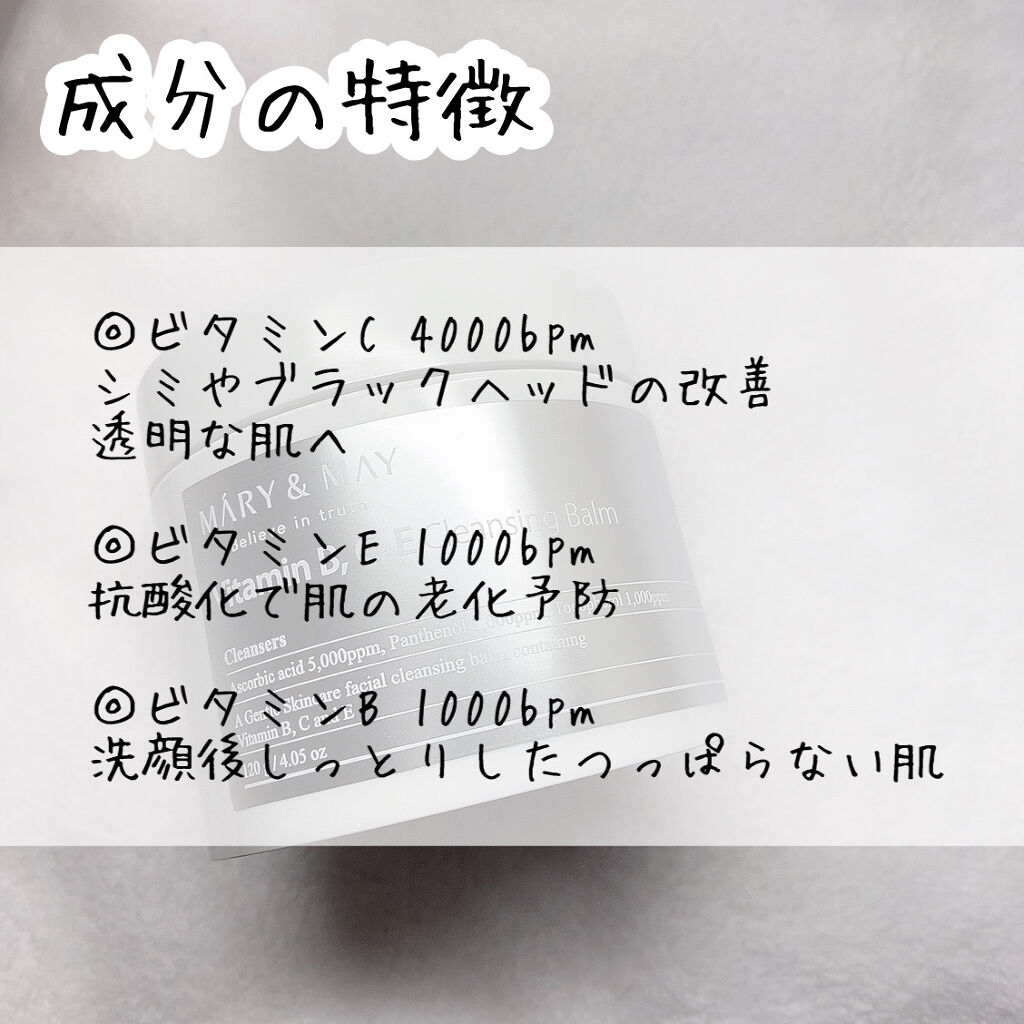 成分の特徴
◎ビタミンC 4000bpm
シミやブラックヘッドの改善
透明な肌へ
MARY & MAY
believe in truth
Vitamin B, C, E Cleansing Balm
◎ビタミンE 1000bpm
抗酸化で肌の老化予防
Cleansers
Ascorbic acid 5,000ppm, Panthenol 1,000ppm, Tocopherol 1,000ppm
A Gentle Skincare facial cleansing balm containing
Vitamin B, C and E
◎ビタミンB 1000bpm
洗顔後しっとりしたつっぱらない肌
120 g / 4.05 oz